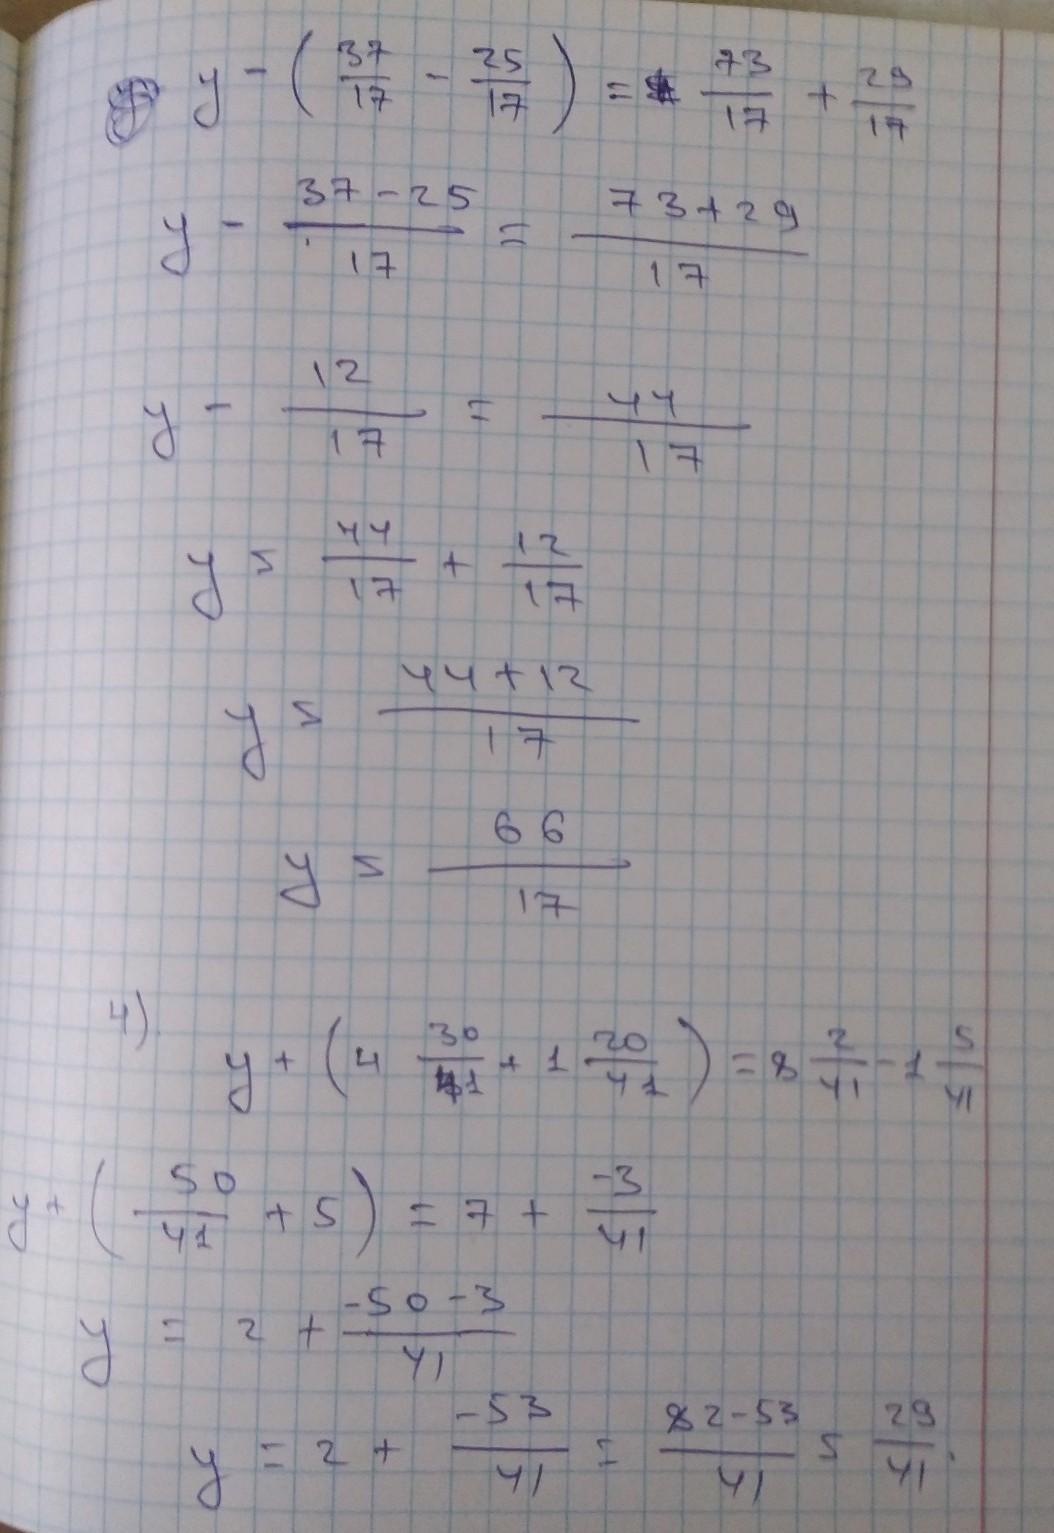 y - (37/17 - 25/17) = 73/17 + 29/17
y - (37-25)/17 = (73+29)/17
y - 12/17 = 44/17
y = 44/17 + 12/17
y = (44+12)/17
y = 66/17
4) y + (4 30/41 + 1 20/41) = 8 2/41 - 1 5/41
y + (50/41 + 5) = 7 + -3/41
y = 2 + (-50-3)/41
y = 2 + -53/41 = (82-53)/41 = 29/41.